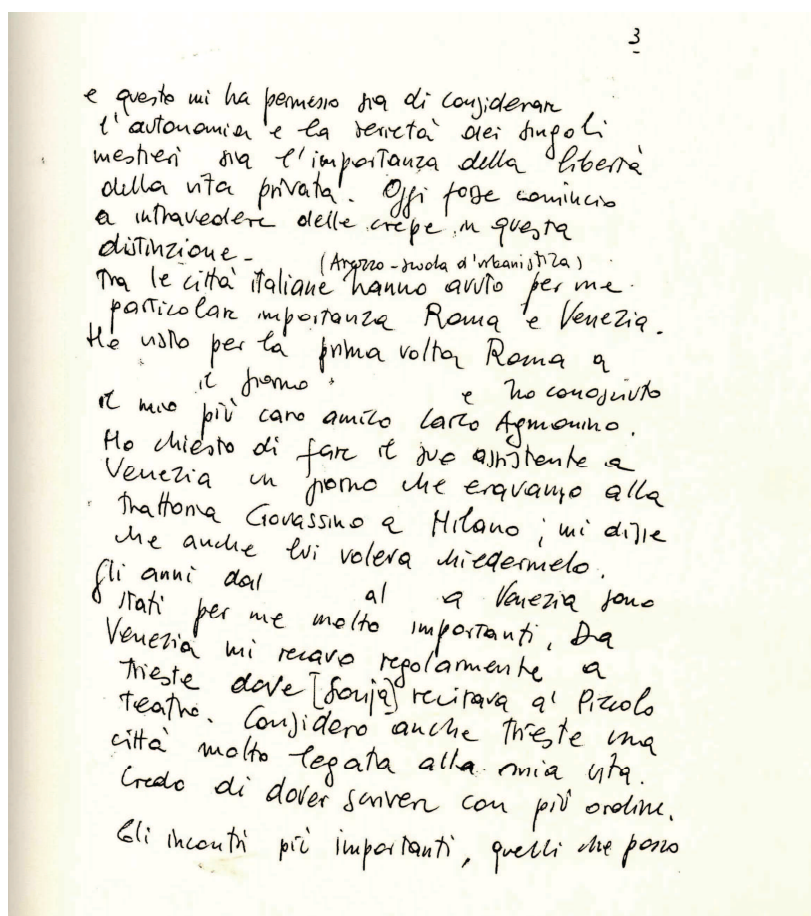 3
e questo mi ha permesso sia di considerare
l'autonomia e la serietà dei singoli
mestieri sia l'importanza della libertà
della vita privata. Oggi forse comincio
a intravedere delle crepe in questa
distinzione -
(Arezzo - scuola d'urbanistica)
Tra le città italiane hanno avuto per me
particolare importanza Roma e Venezia.
Ho visto per la prima volta Roma a
il giorno e ho conosciuto
il mio più caro amico Carlo Aymonino.
Ho chiesto di fare il suo assistente a
Venezia un giorno che eravamo alla
trattoria a Milano; mi disse
che anche lui voleva chiedermelo.
Gli anni dal al a Venezia sono
stati per me molto importanti. Da
Venezia mi recavo regolarmente a
Trieste dove [Sonja] recitava al Piccolo
Teatro. Considero anche Trieste una
città molto legata alla mia vita.
Credo di dover scrivere con più ordine.
Gli incontri più importanti, quelli che posso